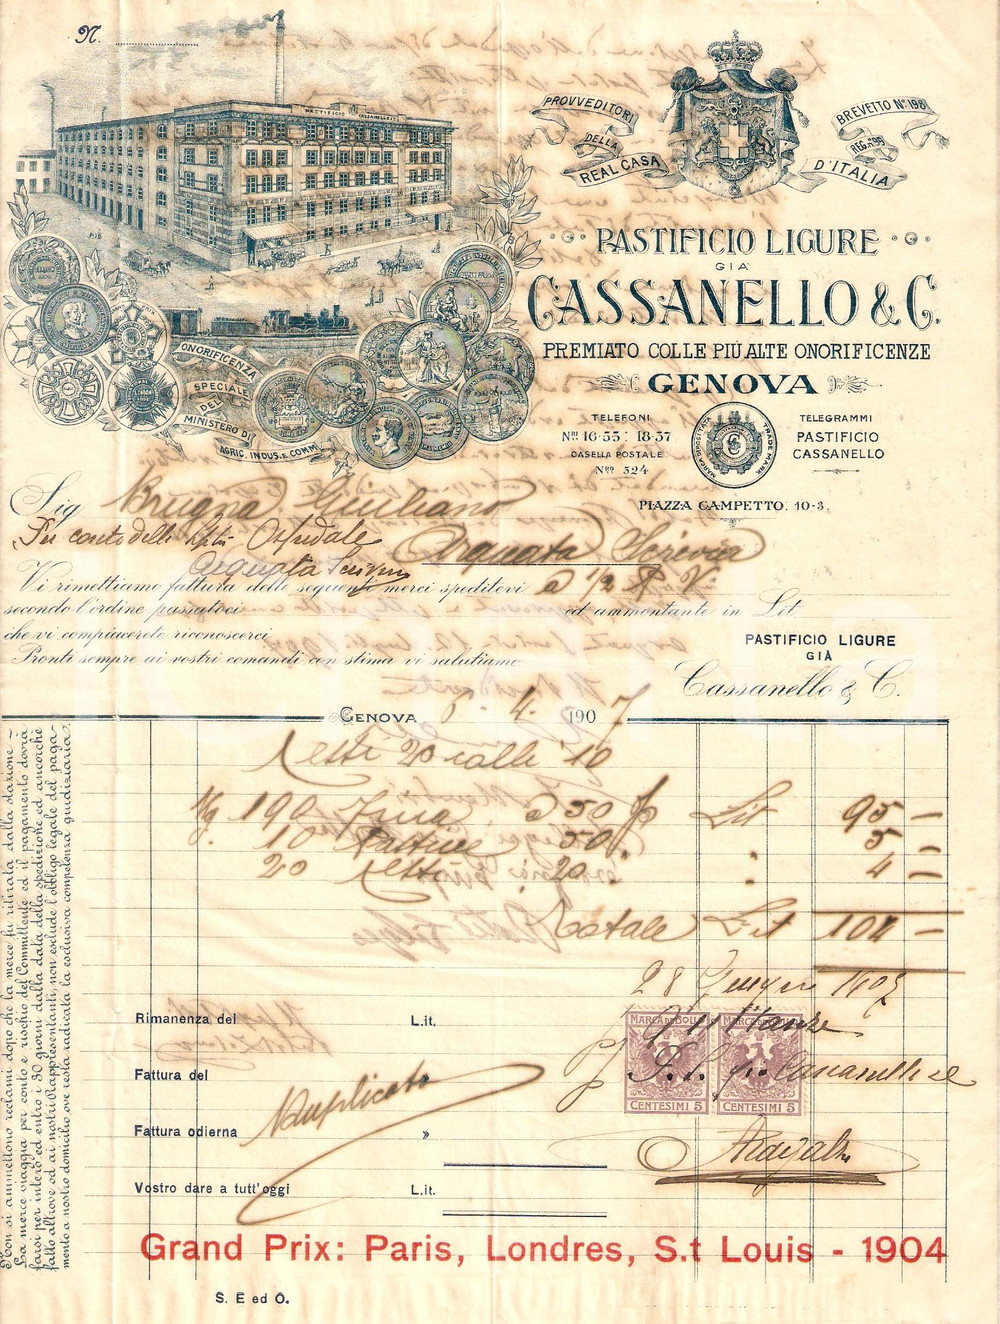 N.
PASTIFICIO CASSANELLO
PROVVEDITORI
DELLA
REAL CASA
BREVETTO Nº 198
REG. 99
D'ITALIA
PASTIFICIO LIGURE
GIÀ
CASSANELLO & C.
PREMIATO COLLE PIÙ ALTE ONORIFICENZE
GENOVA
ONORIFICENZA
SPECIALE
DEL
MINISTERO DI
AGRIC. INDUS. E COMM.
TELEFONI
Nri 16-55: 18-37
CASELLA POSTALE
Nro 524
MARCA DEPOSITATA
TRADE MARK
TELEGRAMMI
PASTIFICIO
CASSANELLO
PIAZZA CAMPETTO. 10-3.
Sig Brugna Giuliano
Per conto dello Ospedale Arquata Scrivia
Arquata Scrivia
Vi rimettiamo fattura delle seguenti merci speditevi a 1/2
secondo l'ordine passatoci ed ammontante in Lit
che vi compiacerete riconoscerci
Pronti sempre ai vostri comandi con stima vi salutiamo
PASTIFICIO LIGURE
GIÀ
Cassanello & C.
GENOVA 5. 4. 1907
Netti 20 colli 10
190 a 50 Lit 95 —
10 50 " 5 —
20 20 " 4 —
Totale Lit 104 —
28 1907
Rimanenza del L.it.
MARCA DA BOLLO MARCA DA BOLLO
CENTESIMI 5 CENTESIMI 5
Fattura del "
P. Cassanello e C
Duplicato
Fattura odierna »
Vostro dare a tutt'oggi L.it.
Grand Prix: Paris, Londres, S.t Louis - 1904
S. E ed O.
Non si ammettono reclami dopo che la merce fu ritirata dalla stazione -
La merce viaggia per conto e rischio del Committente ed il pagamento dovrà
farsi per intero ed entro i 30 giorni dalla data della spedizione ed ancorchè
fatto altrove od ai nostri Rappresentanti, non esclude l'obbligo legale del paga-
mento a nostro domicilio ove resta radicata la esclusiva competenza giudiziaria.